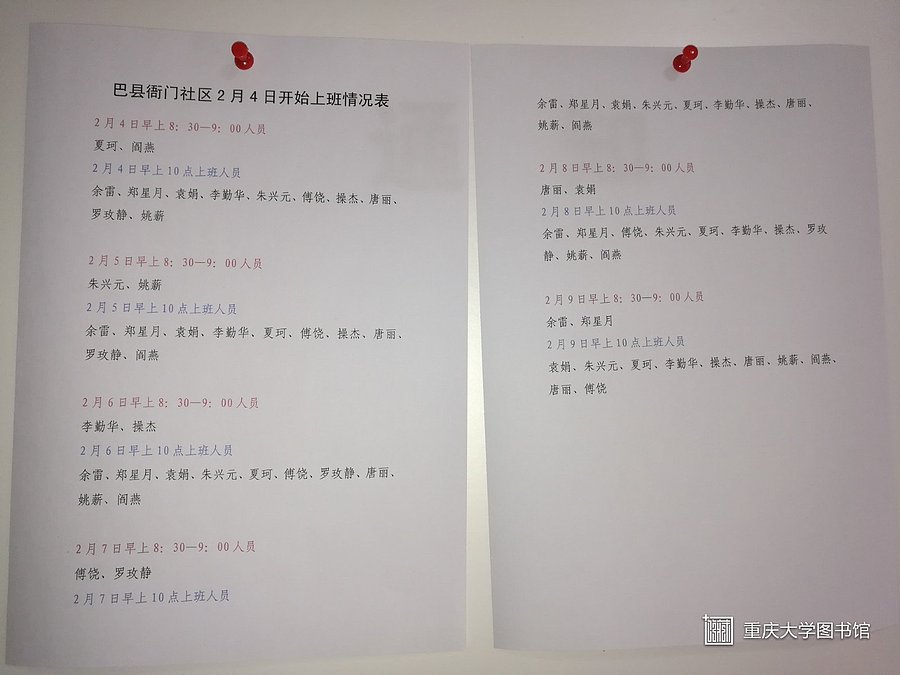 巴县衙门社区2月4日开始上班情况表
2月4日早上8：30—9：00人员
夏珂、阎燕
2月4日早上10点上班人员
余雷、郑星月、袁娟、李勤华、朱兴元、傅饶、操杰、唐丽、
罗玫静、姚薪
2月5日早上8：30—9：00人员
朱兴元、姚薪
2月5日早上10点上班人员
余雷、郑星月、袁娟、李勤华、夏珂、傅饶、操杰、唐丽、
罗玫静、阎燕
2月6日早上8：30—9：00人员
李勤华、操杰
2月6日早上10点上班人员
余雷、郑星月、袁娟、朱兴元、夏珂、傅饶、罗玫静、唐丽、
姚薪、阎燕
2月7日早上8：30—9：00人员
傅饶、罗玫静
2月7日早上10点上班人员
余雷、郑星月、袁娟、朱兴元、夏珂、李勤华、操杰、唐丽、
姚薪、阎燕
2月8日早上8：30—9：00人员
唐丽、袁娟
2月8日早上10点上班人员
余雷、郑星月、傅饶、朱兴元、夏珂、李勤华、操杰、罗玫
静、姚薪、阎燕
2月9日早上8：30—9：00人员
余雷、郑星月
2月9日早上10点上班人员
袁娟、朱兴元、夏珂、李勤华、操杰、唐丽、姚薪、阎燕、
唐丽、傅饶
重庆大学图书馆